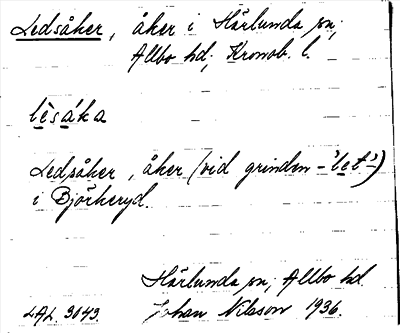 Ledsåker, åker i Härlunda sn,
Allbo hd, Kronob. l.
lèsáka
Ledsåker, åker (vid grinden -"let"-)
i Björkeryd.
Härlunda sn, Allbo hd.
LAL 3043. Johan Nilsson 1936.